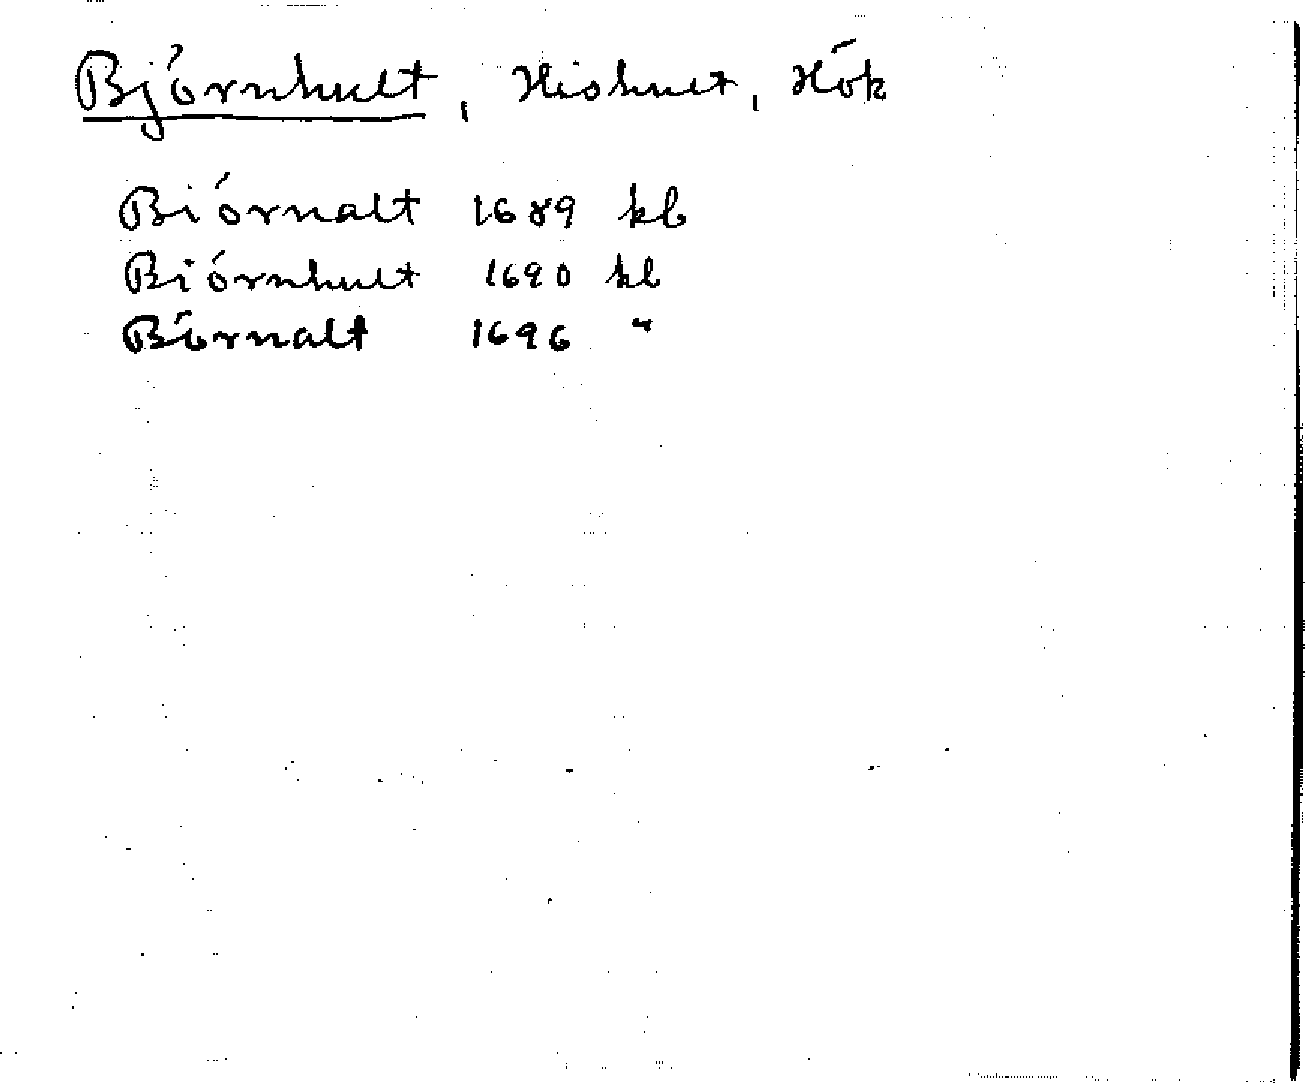 Björnhult, Hishult, Hök
Biörnalt 1689 kb
Biörnhult 1690 kb
Börnalt 1696 "